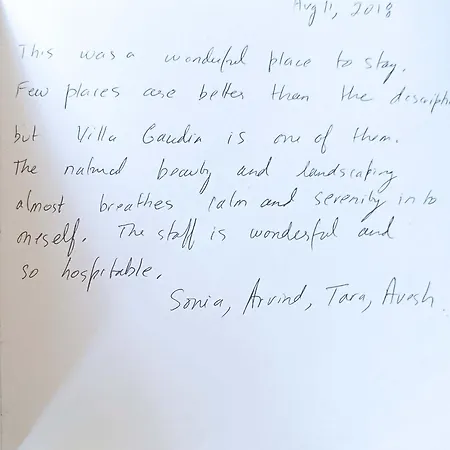 Aug 11, 2018
This was a wonderful place to stay.
Few places are better than the descripti
but Villa Gaudin is one of them.
The natural beauty and landscaping
almost breathes calm and serenity into
oneself. The staff is wonderful and
so hospitable.
Sonia, Arvind, Tara, Avesh.